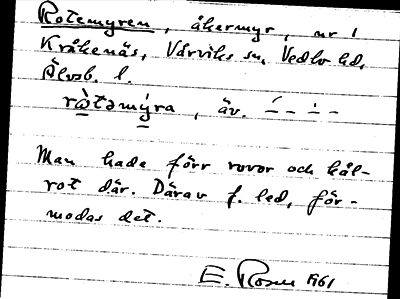 Rotemyren, åkermyr, nr 1
Kråkenäs, Vårviks sn, Vedbo hd,
Älvsb. l.
ròtəmy̆ra, äv. – – – –
Man hade förr rovor och kål-
rot där. Därav f. led, för-
modas det.
E. Rosen 1961